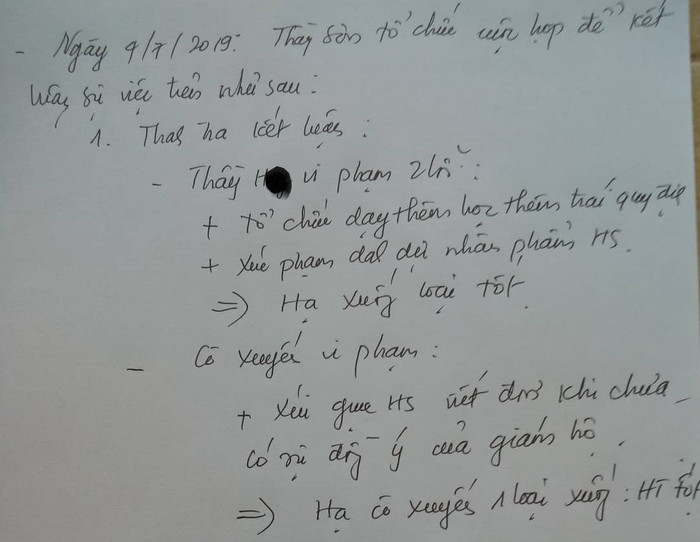 - Ngày 4/7/2019: Thầy Sơn tổ chức cuộc họp để kết
luận sự việc trên như sau:
1. Thay ra kết luận:
- Thầy H vi phạm 2 lỗi:
+ tổ chức dạy thêm học thêm trái quy định
+ xúc phạm danh dự nhân phẩm HS.
=> Hạ xuống loại tốt.
- Cô Xuyến vi phạm:
+ Xúi giục HS viết đơn khi chưa
có sự đồng ý của giám hộ.
=> Hạ cô Xuyến 1 loại xuống: HT tốt